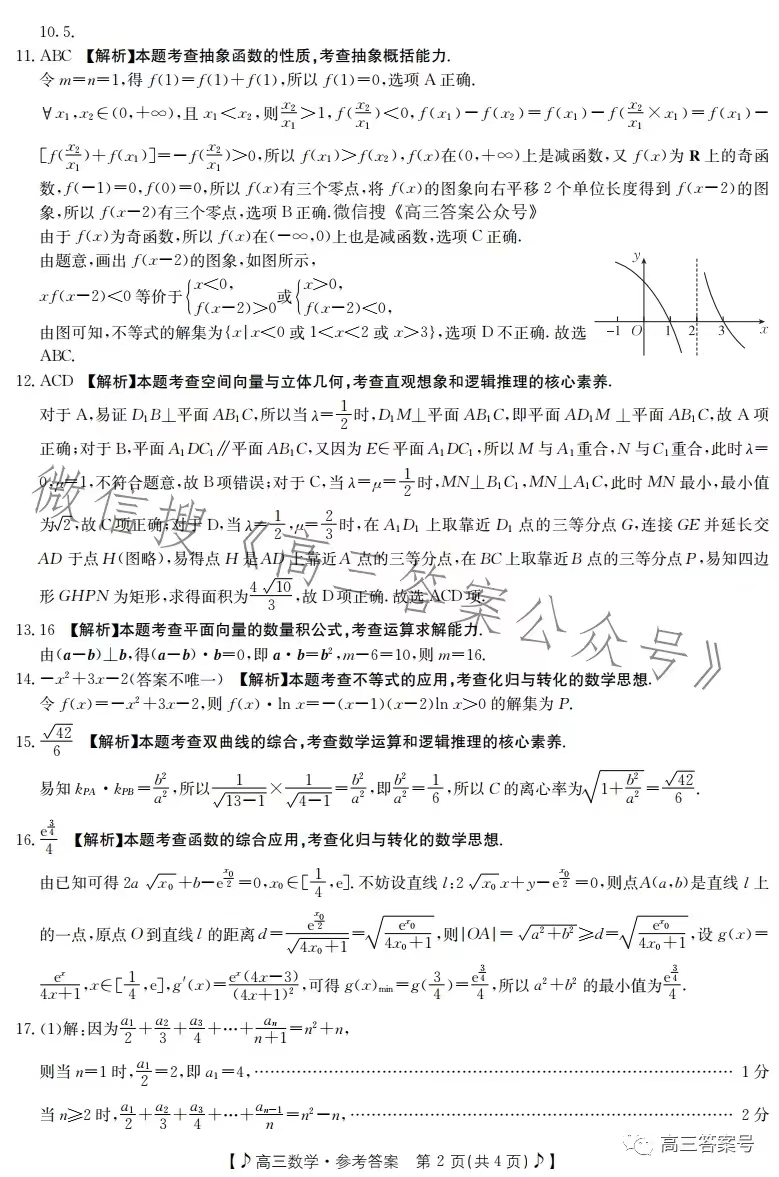 10.5.
11. ABC 【解析】本题考查抽象函数的性质,考查抽象概括能力.
令 m=n=1,得 f(1)=f(1)+f(1),所以 f(1)=0,选项 A 正确.
∀x₁,x₂∈(0,+∞),且 x₁<x₂,则x₂/x₁>1,f(x₂/x₁)<0,f(x₁)-f(x₂)=f(x₁)-f(x₂/x₁×x₁)=f(x₁)-
[f(x₂/x₁)+f(x₁)]=-f(x₂/x₁)>0,所以 f(x₁)>f(x₂),f(x)在(0,+∞)上是减函数,又 f(x)为 R 上的奇函
数,f(-1)=0,f(0)=0,所以 f(x)有三个零点,将 f(x)的图象向右平移 2 个单位长度得到 f(x-2)的图
象,所以 f(x-2)有三个零点,选项 B 正确.微信搜《高三答案公众号》
由于 f(x)为奇函数,所以 f(x)在(-∞,0)上也是减函数,选项 C 正确.
由题意,画出 f(x-2)的图象,如图所示,
xf(x-2)<0 等价于{x<0, f(x-2)>0 或{x>0, f(x-2)<0,
由图可知,不等式的解集为{x|x<0 或 1<x<2 或 x>3},选项 D 不正确. 故选
ABC.
y
-1 O 1 2 3 x
12. ACD 【解析】本题考查空间向量与立体几何,考查直观想象和逻辑推理的核心素养.
对于 A,易证 D₁B⊥平面 AB₁C,所以当 λ=1/2时,D₁M⊥平面 AB₁C,即平面 AD₁M ⊥平面 AB₁C,故 A 项
正确;对于 B,平面 A₁DC₁∥平面 AB₁C,又因为 E∈平面 A₁DC₁,所以 M 与 A₁重合,N 与 C₁重合,此时 λ=
0,μ=1,不符合题意,故 B 项错误;对于 C,当 λ=μ=1/2时,MN⊥B₁C₁,MN⊥A₁C,此时 MN 最小,最小值
为√2,故 C 项正确;对于 D,当 λ=1/2,μ=2/3时,在 A₁D₁ 上取靠近 D₁ 点的三等分点 G,连接 GE 并延长交
AD 于点 H(图略),易得点 H 是 AD 上靠近 A 点的三等分点,在 BC 上取靠近 B 点的三等分点 P,易知四边
形 GHPN 为矩形,求得面积为4√10/3,故 D 项正确. 故选 ACD 项.
13. 16 【解析】本题考查平面向量的数量积公式,考查运算求解能力.
由(a-b)⊥b,得(a-b)·b=0,即 a·b=b²,m-6=10,则 m=16.
14. -x²+3x-2(答案不唯一) 【解析】本题考查不等式的应用,考查化归与转化的数学思想.
令 f(x)=-x²+3x-2,则 f(x)·ln x=-(x-1)(x-2)ln x>0 的解集为 P.
15. √42/6 【解析】本题考查双曲线的综合,考查数学运算和逻辑推理的核心素养.
易知 k_PA·k_PB=b²/a²,所以1/√(13-1)×1/√(4-1)=b²/a²,即b²/a²=1/6,所以 C 的离心率为√(1+b²/a²)=√42/6.
16. e^(3/4)/4 【解析】本题考查函数的综合应用,考查化归与转化的数学思想.
由已知可得 2a√x₀+b-e^(x₀/2)=0,x₀∈[1/4,e]. 不妨设直线 l:2√x₀x+y-e^(x₀/2)=0,则点A(a,b)是直线 l 上
的一点,原点 O 到直线 l 的距离 d=e^(x₀/2)/√(4x₀+1)=√(e^x₀/(4x₀+1)),则|OA|=√(a²+b²)≥d=√(e^x₀/(4x₀+1)),设 g(x)=
e^x/(4x+1),x∈[1/4,e],g′(x)=e^x(4x-3)/(4x+1)²,可得 g(x)min=g(3/4)=e^(3/4)/4,所以 a²+b² 的最小值为e^(3/4)/4.
17. (1)解:因为a₁/2+a₂/3+a₃/4+…+aₙ/(n+1)=n²+n,
则当 n=1 时,a₁/2=2,即 a₁=4,………………………………………………………………… 1 分
当 n≥2 时,a₁/2+a₂/3+a₃/4+…+aₙ₋₁/n=n²-n,………………………………………………… 2 分
微信搜《高三答案公众号》
高三答案号
【♪高三数学·参考答案 第 2 页(共 4 页)♪】